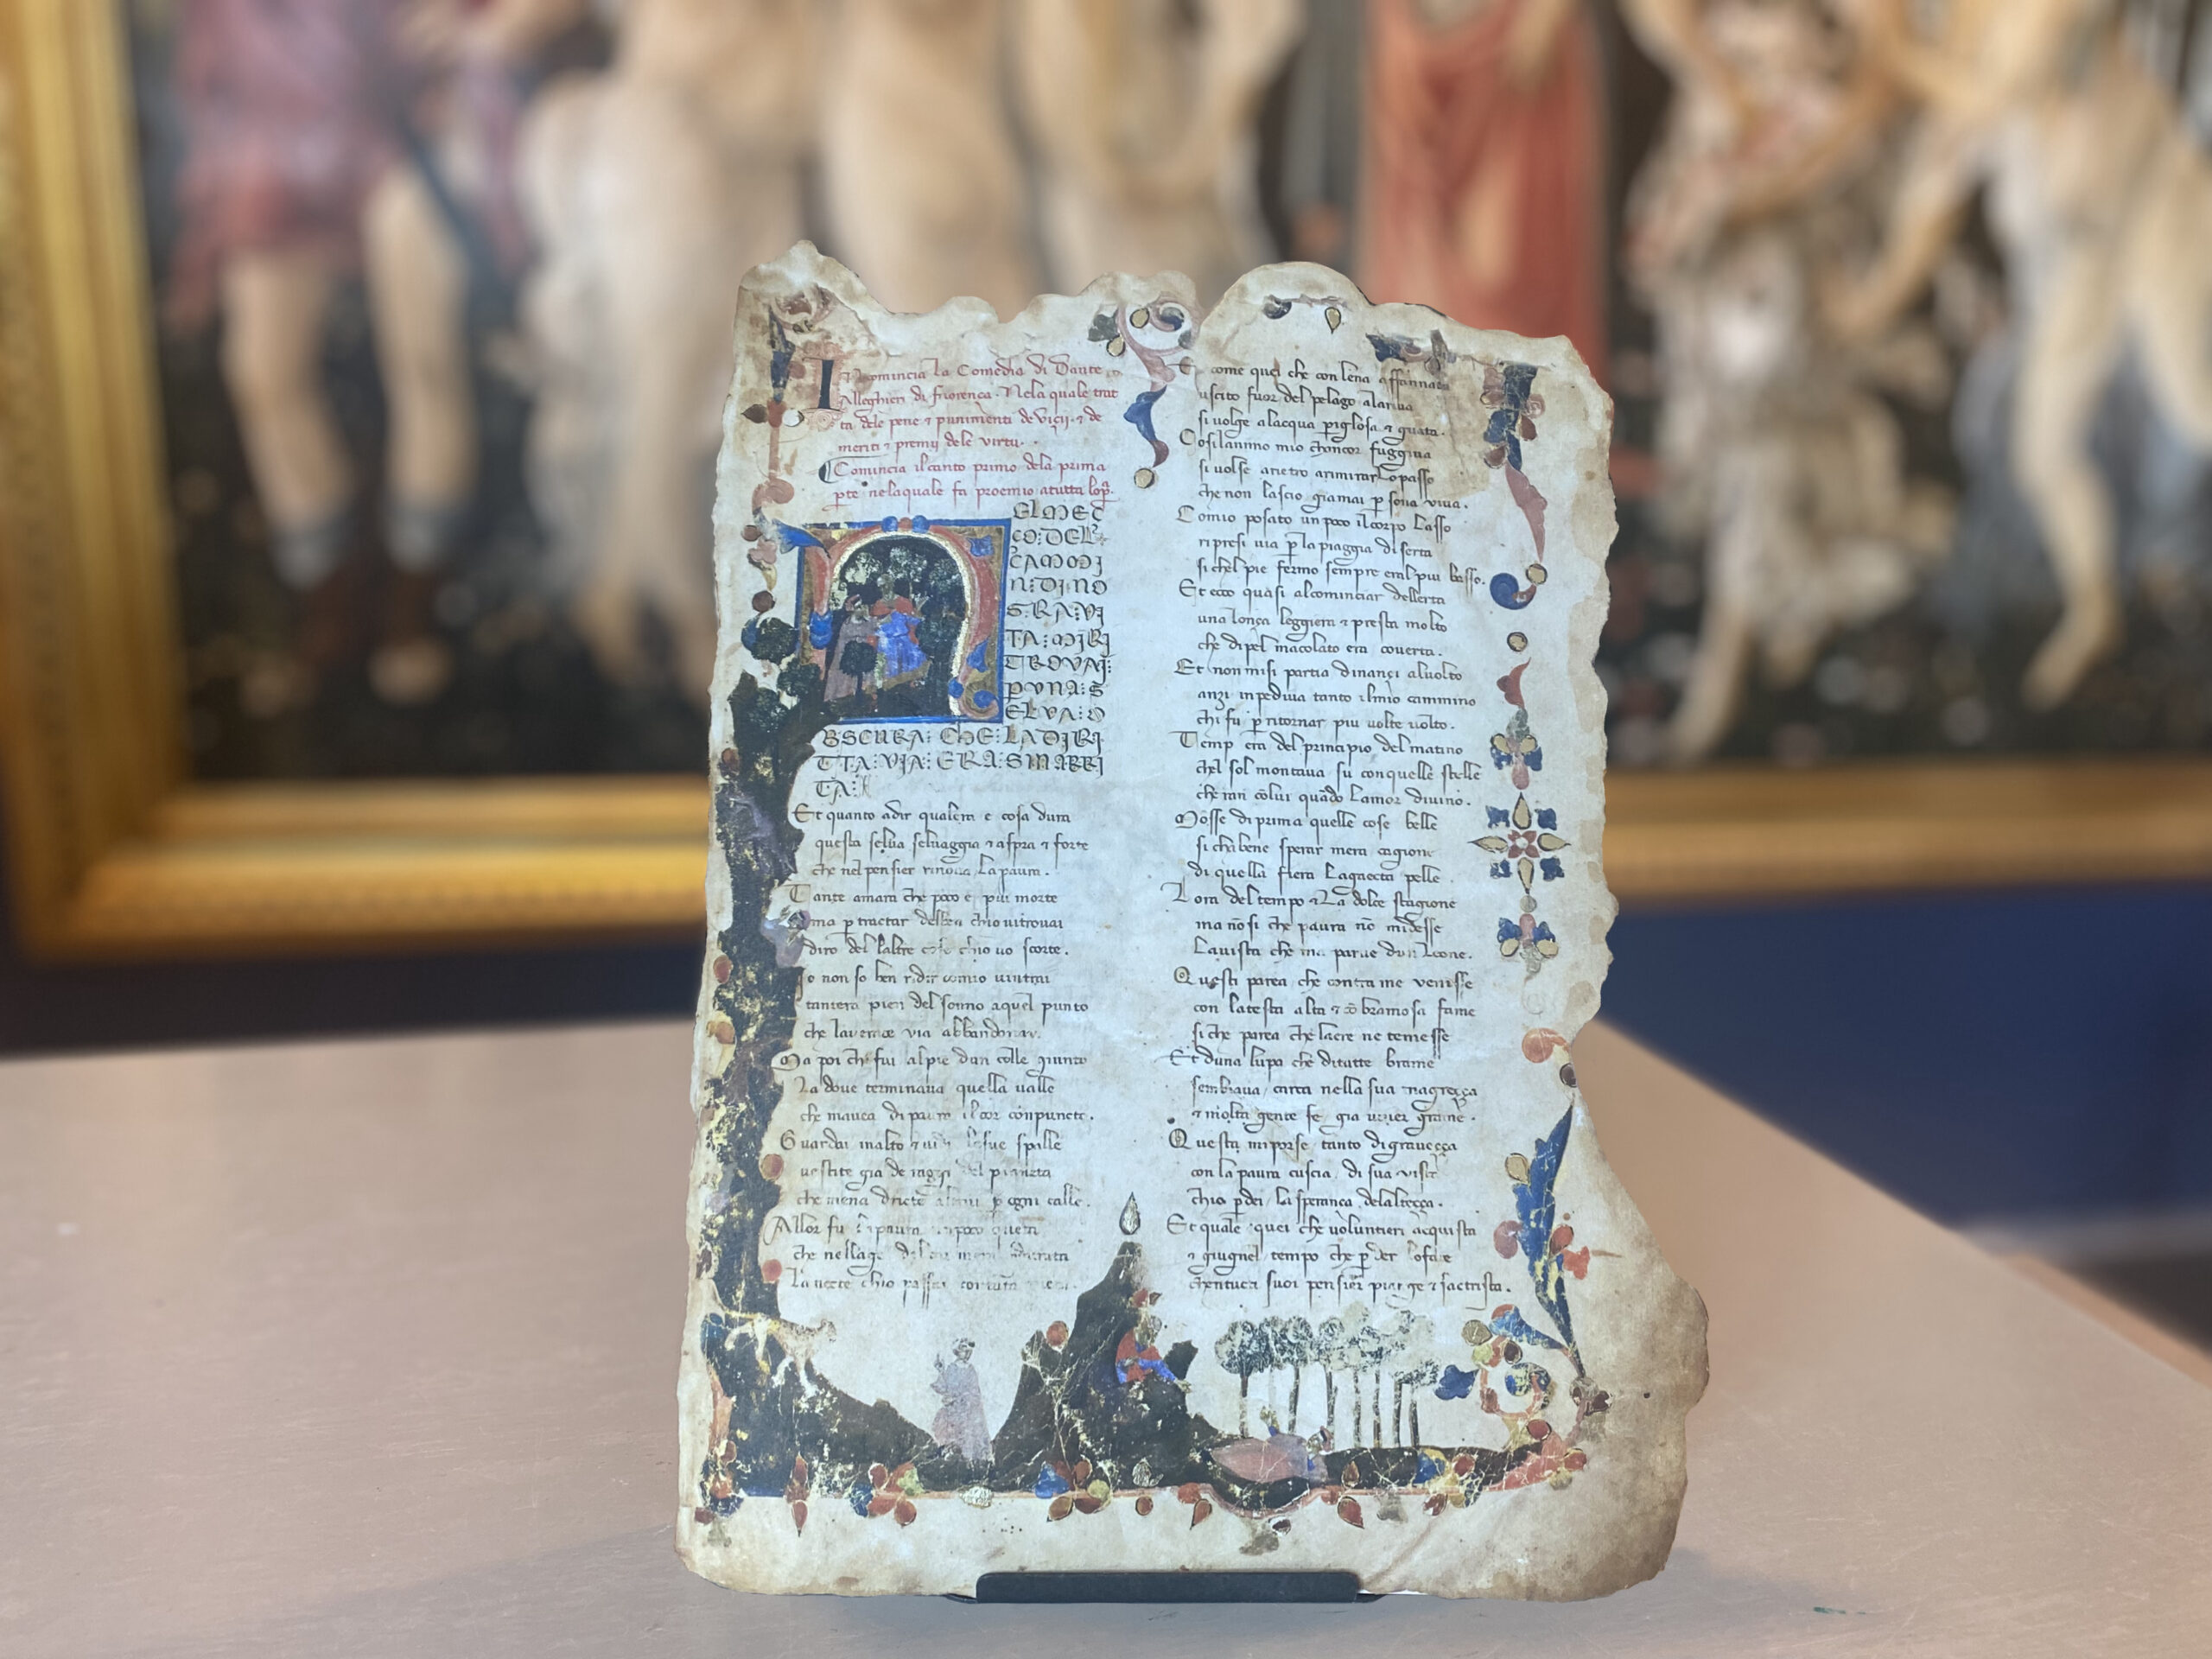 Incomincia la Comedia di Dante
Alleghieri di fiorença. Nela quale trat
ta dele pene ⁊ punimenti de viçii ⁊ de
meriti ⁊ premij dele virtu.
Comincia il canto primo dela prima
pte nelaquale fa proemio atutta lopa.
ELMEÇ
ÇO:DEL
CAMMI
N:DI:NO
S:RA:VI
TA:MIRI
TROVAI:
PVNA:S
ELVA:O
BSCURA: CHE: LADIRI
TTA:VIA: ERA:SMARRI
TA:
Et quanto adir qualera e cosa dura
questa selua seluaggia ⁊ aspra ⁊ forte
che nel pensier rinoua la paura.
Tante amara che poco e piu morte
ma p tractar del ben chio uitrouai
diro del laltre cose chio uo scorte.
Io non so ben ridir comio uintrai
tantera pien del sonno aquel punto
che lauerace via abbandonai.
Ma poi che fui alpie dun colle giunto
la doue terminaua quella ualle
che mauea di paura il cor conpuncto.
Guardai inalto ⁊ uidi le sue spalle
uestite gia de raggi del pianeta
che mena dricto altrui p ogni calle.
Allor fu la paura un poco queta
che nellago del cor mera durata
la nocte chio passai con tanta pieta.
E come quei che con lena affannata
uscito fuor del pelago alariua
si uolge alacqua piglosa ⁊ guata.
Cosi lanimo mio chancor fuggiua
si uolse arietro arimirar lopasso
che non lascio giamai psona viua.
Comio posato un poco il corpo lasso
ripresi uia p la piaggia diserta
si chel pie fermo sempre eral piu basso.
Et ecco quasi alcominciar dellerta
una lonça leggiera ⁊ presta molto
che dipel macolato era couerta.
Et non misi partia dinançi aluolto
anzi inpediua tanto ilmio cammino
chi fu p ritornar piu uolte uolto.
Temp era del principio del matino
chel sol montaua su con quelle stelle
cheran cõlui quãdo lamor diuino.
Mosse di prima quelle cose belle
si chabene sperar mera cagione
di quella fiera lagaecta pelle.
Lora del tempo ⁊ La dolce stagione
ma nõ si che paura nõ midesse
Lauista che mi parue dun leone.
Questi parea che contra me venisse
con latesta alta ⁊ cõ bramosa fame
si che parea che laere ne temesse
Et duna lupa che ditutte brame
sembiaua carca nella sua magreçça
⁊ molta gente fe gia uiuer grame.
Questa miporse tanto digraueçça
con la paura cuscia di sua vista
chio pdei la sperança delalteçça.
Et quale quei che uoluntieri acquista
⁊ giugnel tempo che pder lo face
chentucti suoi pensier piange ⁊ sactrista.